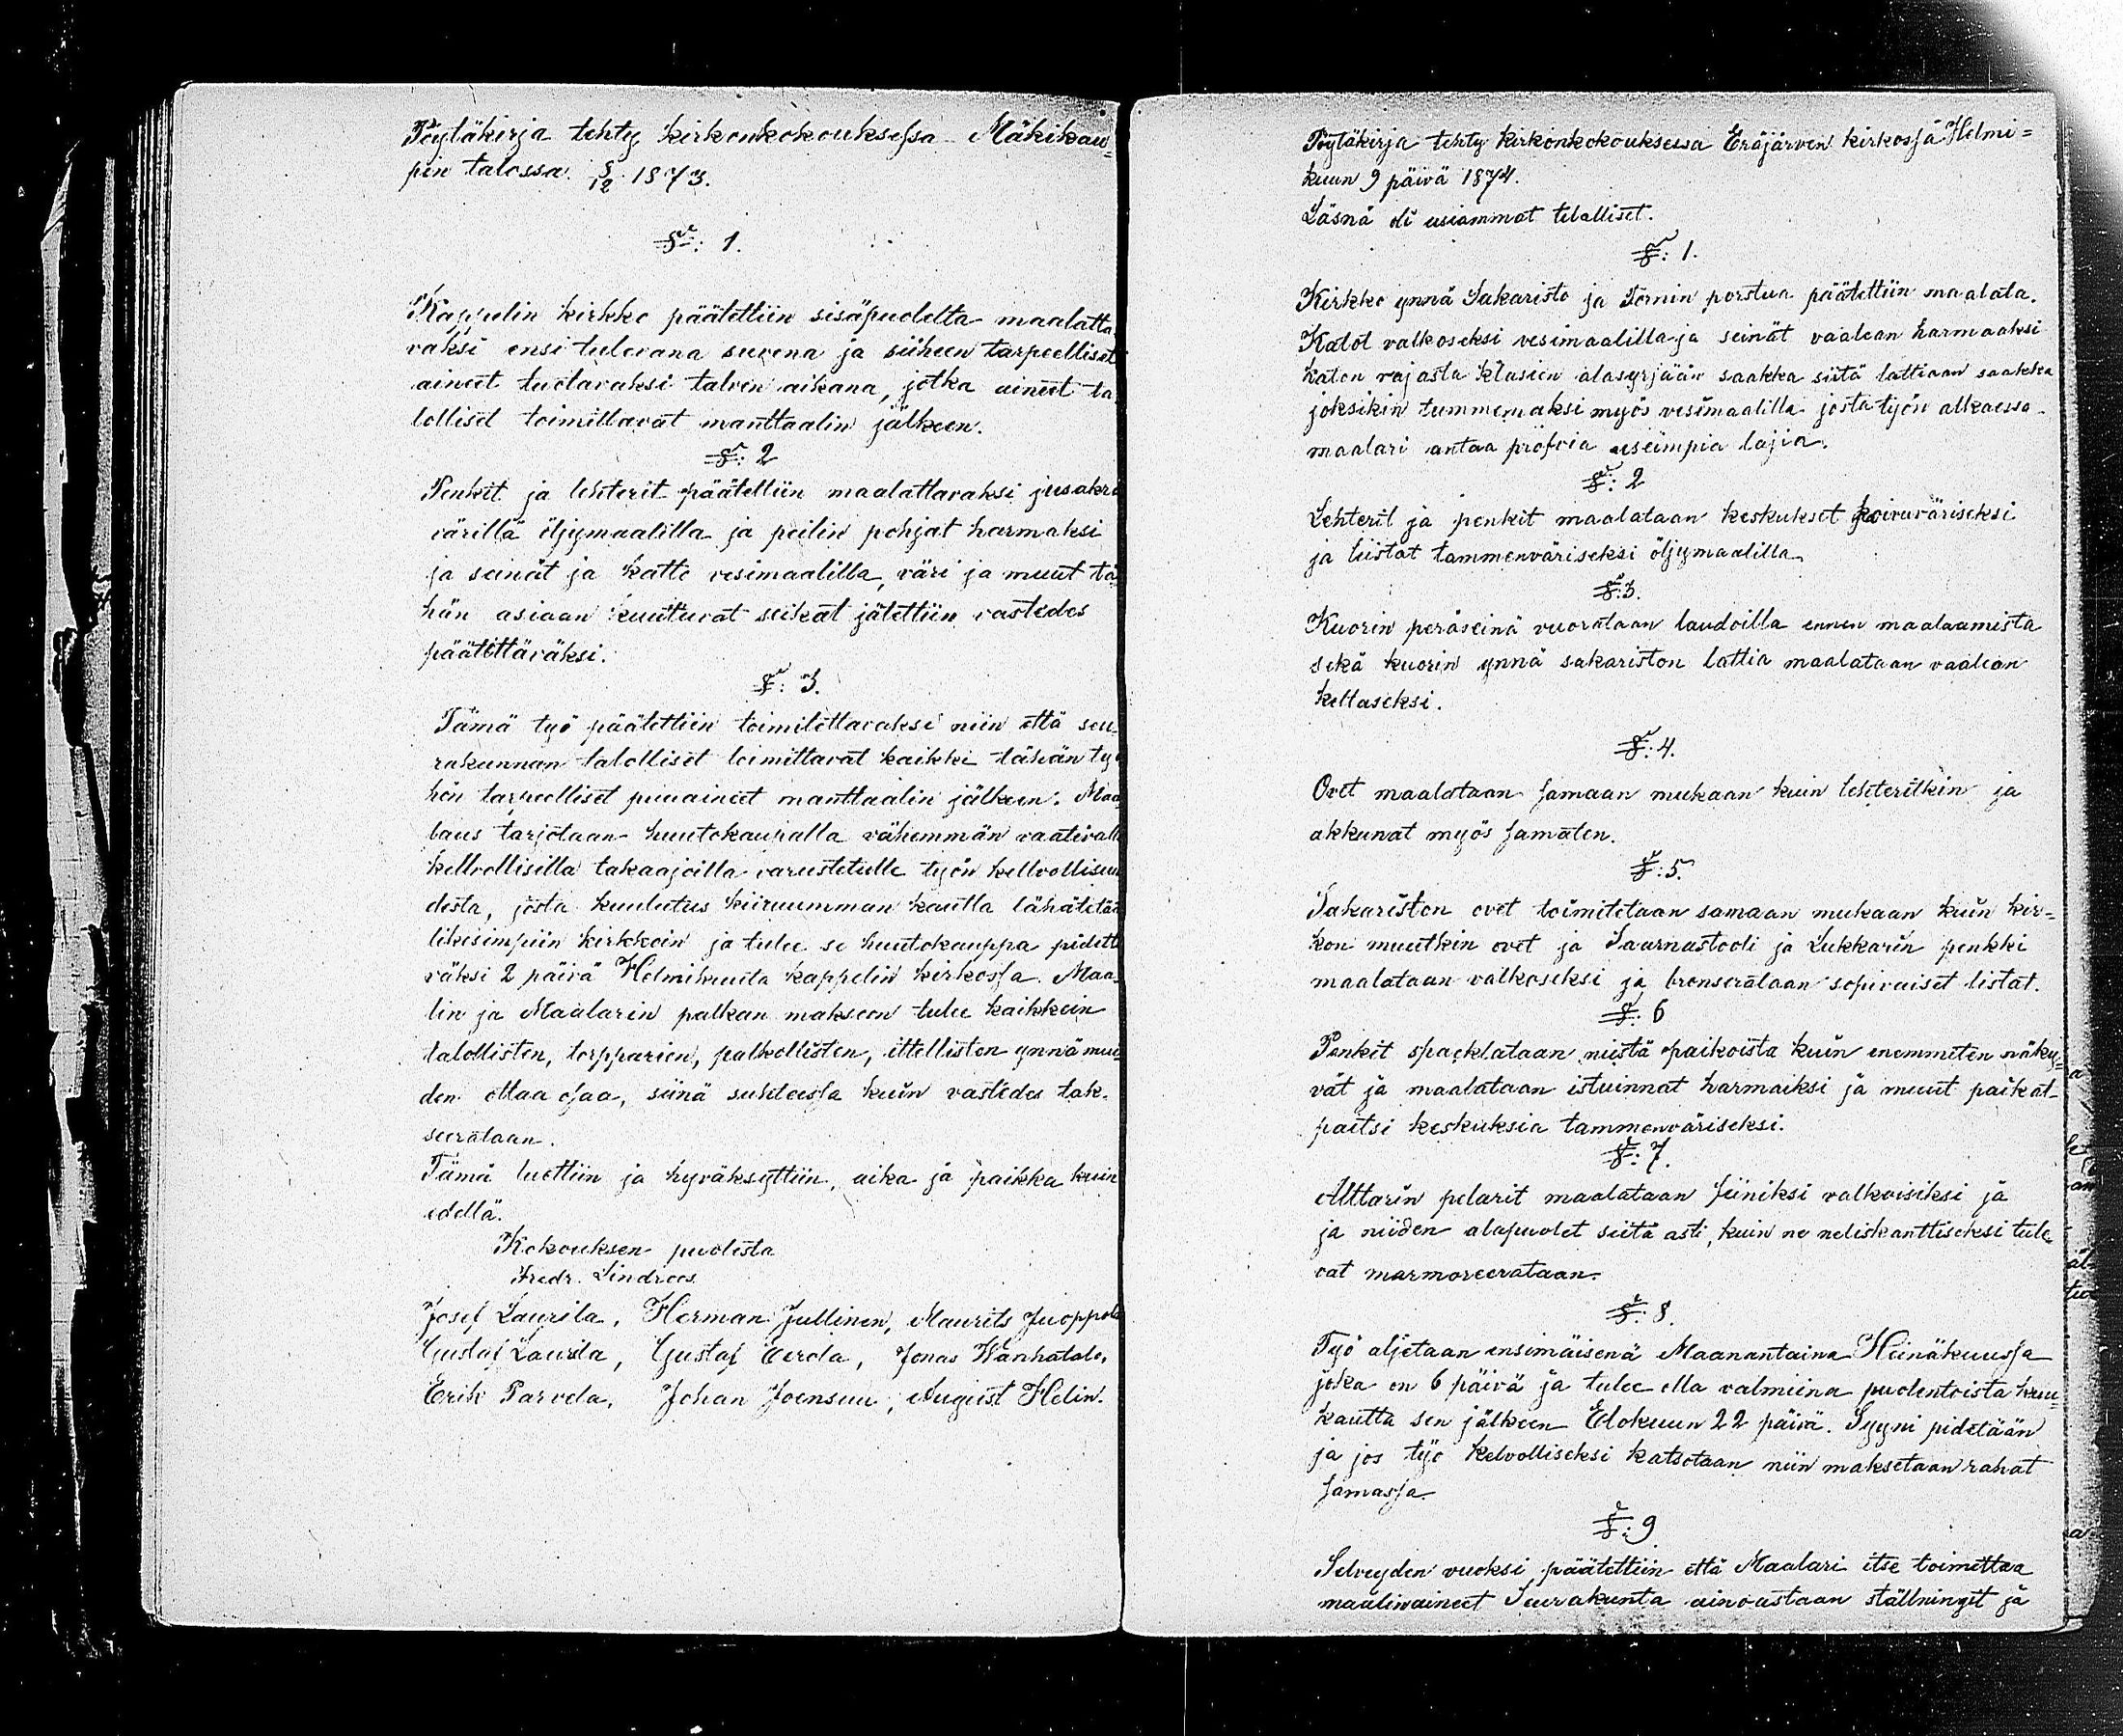 Pöytäkirja tehty kirkonkokouksessa Mäkikau=
pin talossa 8/12 1873.
§: 1.
Kappelin kirkko päätettiin sisäpuolelta maalatta
vaksi ensi tulevana suvena ja siiheen tarpeelliset
aineet tuotavaksi talven aikana, jotka aineet ta
lolliset toimittavat manttaalin jälkeen.
§: 2
Penkit ja lehterit päätettiin maalattavaksi
värillä öljymaalilla ja peilin pohjat harmaksi
ja seinät ja katto vesimaalilla, väri ja muut tä
hän asiaan kuuluvat seikat jätettiin vastedes
päätettäväksi.
§: 3.
Tämä työ päätettiin toimitettavaksi niin että seu-
rakunnan talolliset toimittavat kaikki tähän työ
hön tarpeelliset puuaineet manttaalin jälkeen. Maa
laus tarjotaan huutokaupalla vähemmän vaativalle
kellvollisilla takaajoilla varustetulle työn kellvollisuu
desta, josta kuulutus kiiruumman kautta lähätetää
likisimpiin kirkkoin ja tulee se huutokauppa pidettä
väksi 2 päivä Helmikuuta kappelin kirkossa. Maa-
lin ja Maalarin palkan makseon tulee kaikkein
talollisten, torpparien, palkollisten, ittellisten ynnä mui
den ottaa osaa, siinä suhteessa kuin vastedes tak-
seerataan.
Tämä luettiin ja hyväksyttiin, aika ja paikka kuin
edellä.
Kokouksen puolesta
Fredr. Lindroos.
Josef Laurila, Herman Jullinen, Maurits Juoppola
Gustaf Laurila, Gustaf Eerola, Jonas Wanhatalo,
Erik Parvela, Johan Joensuu, August Helin.
Pöytäkirja tehty kirkonkokouksessa Eräjärven kirkossa Helmi=
kuun 9 päivä 1874.
Läsnä oli usiammat tilalliset.
§: 1.
Kirkko ynnä Sakaristo ja Tornin porstua päätettiin maalata.
Katot valkoseksi vesimaalilla ja seinät vaalean harmaaksi
katon rajasta klasien alasyrjään saakka siitä lattiaan saakka
joksikin tummemaksi myös vesimaalilla josta työn alkaessa
maalari antaa profvia useimpia lajia.
§: 2
Lehterit ja penkit maalataan keskukset koivuväriseksi
ja liistat tammenväriseksi öljymaalilla
§: 3.
Kuorin peräseinä vuorataan laudoilla ennen maalaamista
sekä kuorin ynnä sakariston lattia maalataan vaalean
keltaseksi.
§: 4.
Ovet maalataan samaan mukaan kuin lehteritkin ja
akkunat myös samaten.
§: 5.
Sakariston ovet toimitetaan samaan mukaan kuin kir=
kon muutkin ovet ja Saarnastooli ja Lukkarin penkki
maalataan valkoseksi ja bronserataan sopivaiset listat.
§: 6
Penkit spacklataan niistä paikoista kuin enemmiten näky=
vät ja maalataan istuinnat harmaiksi ja muut paikat
paitsi keskuksia tammenväriseksi.
§: 7.
Alttarin pelarit maalataan siiniksi valkoisiksi ja
ja niiden alapuolet siitä asti, kuin ne neliskanttiseksi tule
vat marmoreerataan.
§: 8.
Työ aljetaan ensimäisenä Maanantaina Heinäkuussa
joka on 6 päivä ja tulee olla valmiina puolentoista kuu=
kautta sen jälkeen Elokuun 22 päivä. Syyni pidetään
ja jos työ kelvolliseksi katsotaan niin maksetaan rahat
samassa.
§: 9
Selveyden vuoksi päätettiin että Maalari itse toimittaa
maalinaineet Seurakunta ainoastaan ställningit ja